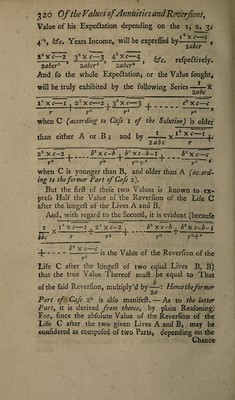 320 Of the Values of Annuities and Reversions,
Value of his Expectation depending on the 1, 2, 3,
4th, &c. Years Income, will be expressed by 1² × c—1 / 2abcr ,
2² × c—2 / 2abcr² , 3² × c—3 / 2abcr³ , 4² × c—4 / 2abcr⁴ , &c. respectively.
And so the whole Expectation, or the Value sought,
will be truly exhibited by the following Series 1 / 2abc ×
1² × c—1 / r + 2² × c—2 / r² + 3² × c—3 / r³ + - - - -
when C (according to Case 1 of the Solution) is older
than either A or B; and by 1 / 2abc × 1² × c—1 / r +
2² × c—2 / r² + - - - -
when C is younger than B, and older than A (accord-
ing to the former Part of Case 2).
But the first of these two Values is known to ex-
press Half the Value of the Reversion of the Life C
after the longest of the Lives A and B.
And, with regard to the Second, it is evident (because
is the Value of the Reversion of the
Life C after the longest of two equal Lives B, B)
that the true Value Thereof must be equal to That
of the said Reversion, multiply'd by b / 2a : Hence the former
Part of Case 2° is also manifest. — As to the latter
Part, it is derived from thence, by plain Reasoning:
For, since the absolute Value of the Reversion of the
Life C after the two given Lives A and B, may be
considered as composed of two Parts, depending on the
Chance